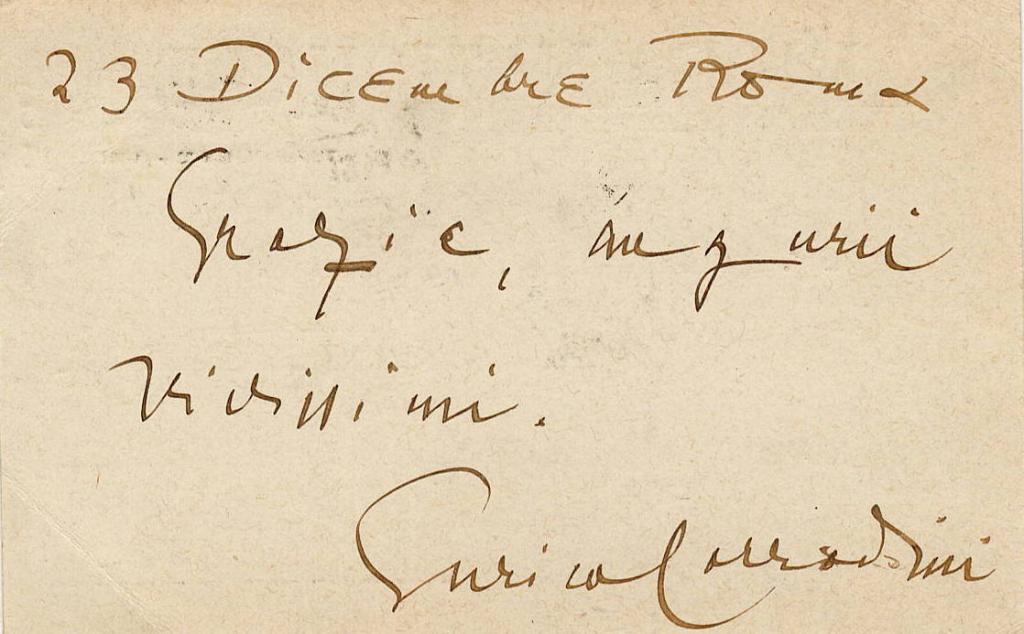 23 Dicembre Roma
Grazie, augurii
vivissimi.
Enrico Corradini